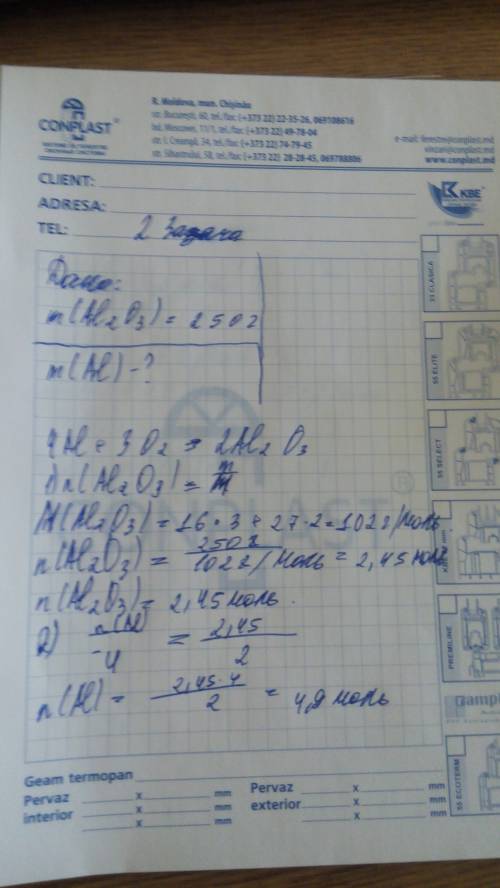 CONPLAST®
R. Moldova, mun. Chișinău
str. București, 60, tel./fax: (+373 22) 22-35-26, 069108616
bd. Moscovei, 11/1, tel./fax: (+373 22) 49-78-04
str. I. Creangă, 34, tel./fax: (+373 22) 74-79-45
str. Sihastrului, 58, tel./fax: (+373 22) 28-28-45, 069788806
www.conplast.md
KBE
CLIENT:
ADRESA:
TEL: 2 Задача
Дано:
m(Al₂O₃) = 250г
m(Al) - ?
4Al + 3O₂ = 2Al₂O₃
1) n(Al₂O₃) = m/M
M(Al₂O₃) = 16·3 + 27·2 = 102г/моль.
n(Al₂O₃) = 250г / 102г/моль = 2,45 моль
n(Al₂O₃) = 2,45 моль.
2) n(Al)/4 = 2,45/2
n(Al) = 2,45·4 / 2 = 4,9 моль
55 ELITE
55 SELECT
PREMILINE
55 ECOTERM
Geam termopan
Pervaz interior x mm
x mm
x mm
Pervaz exterior x mm
x mm
x mm